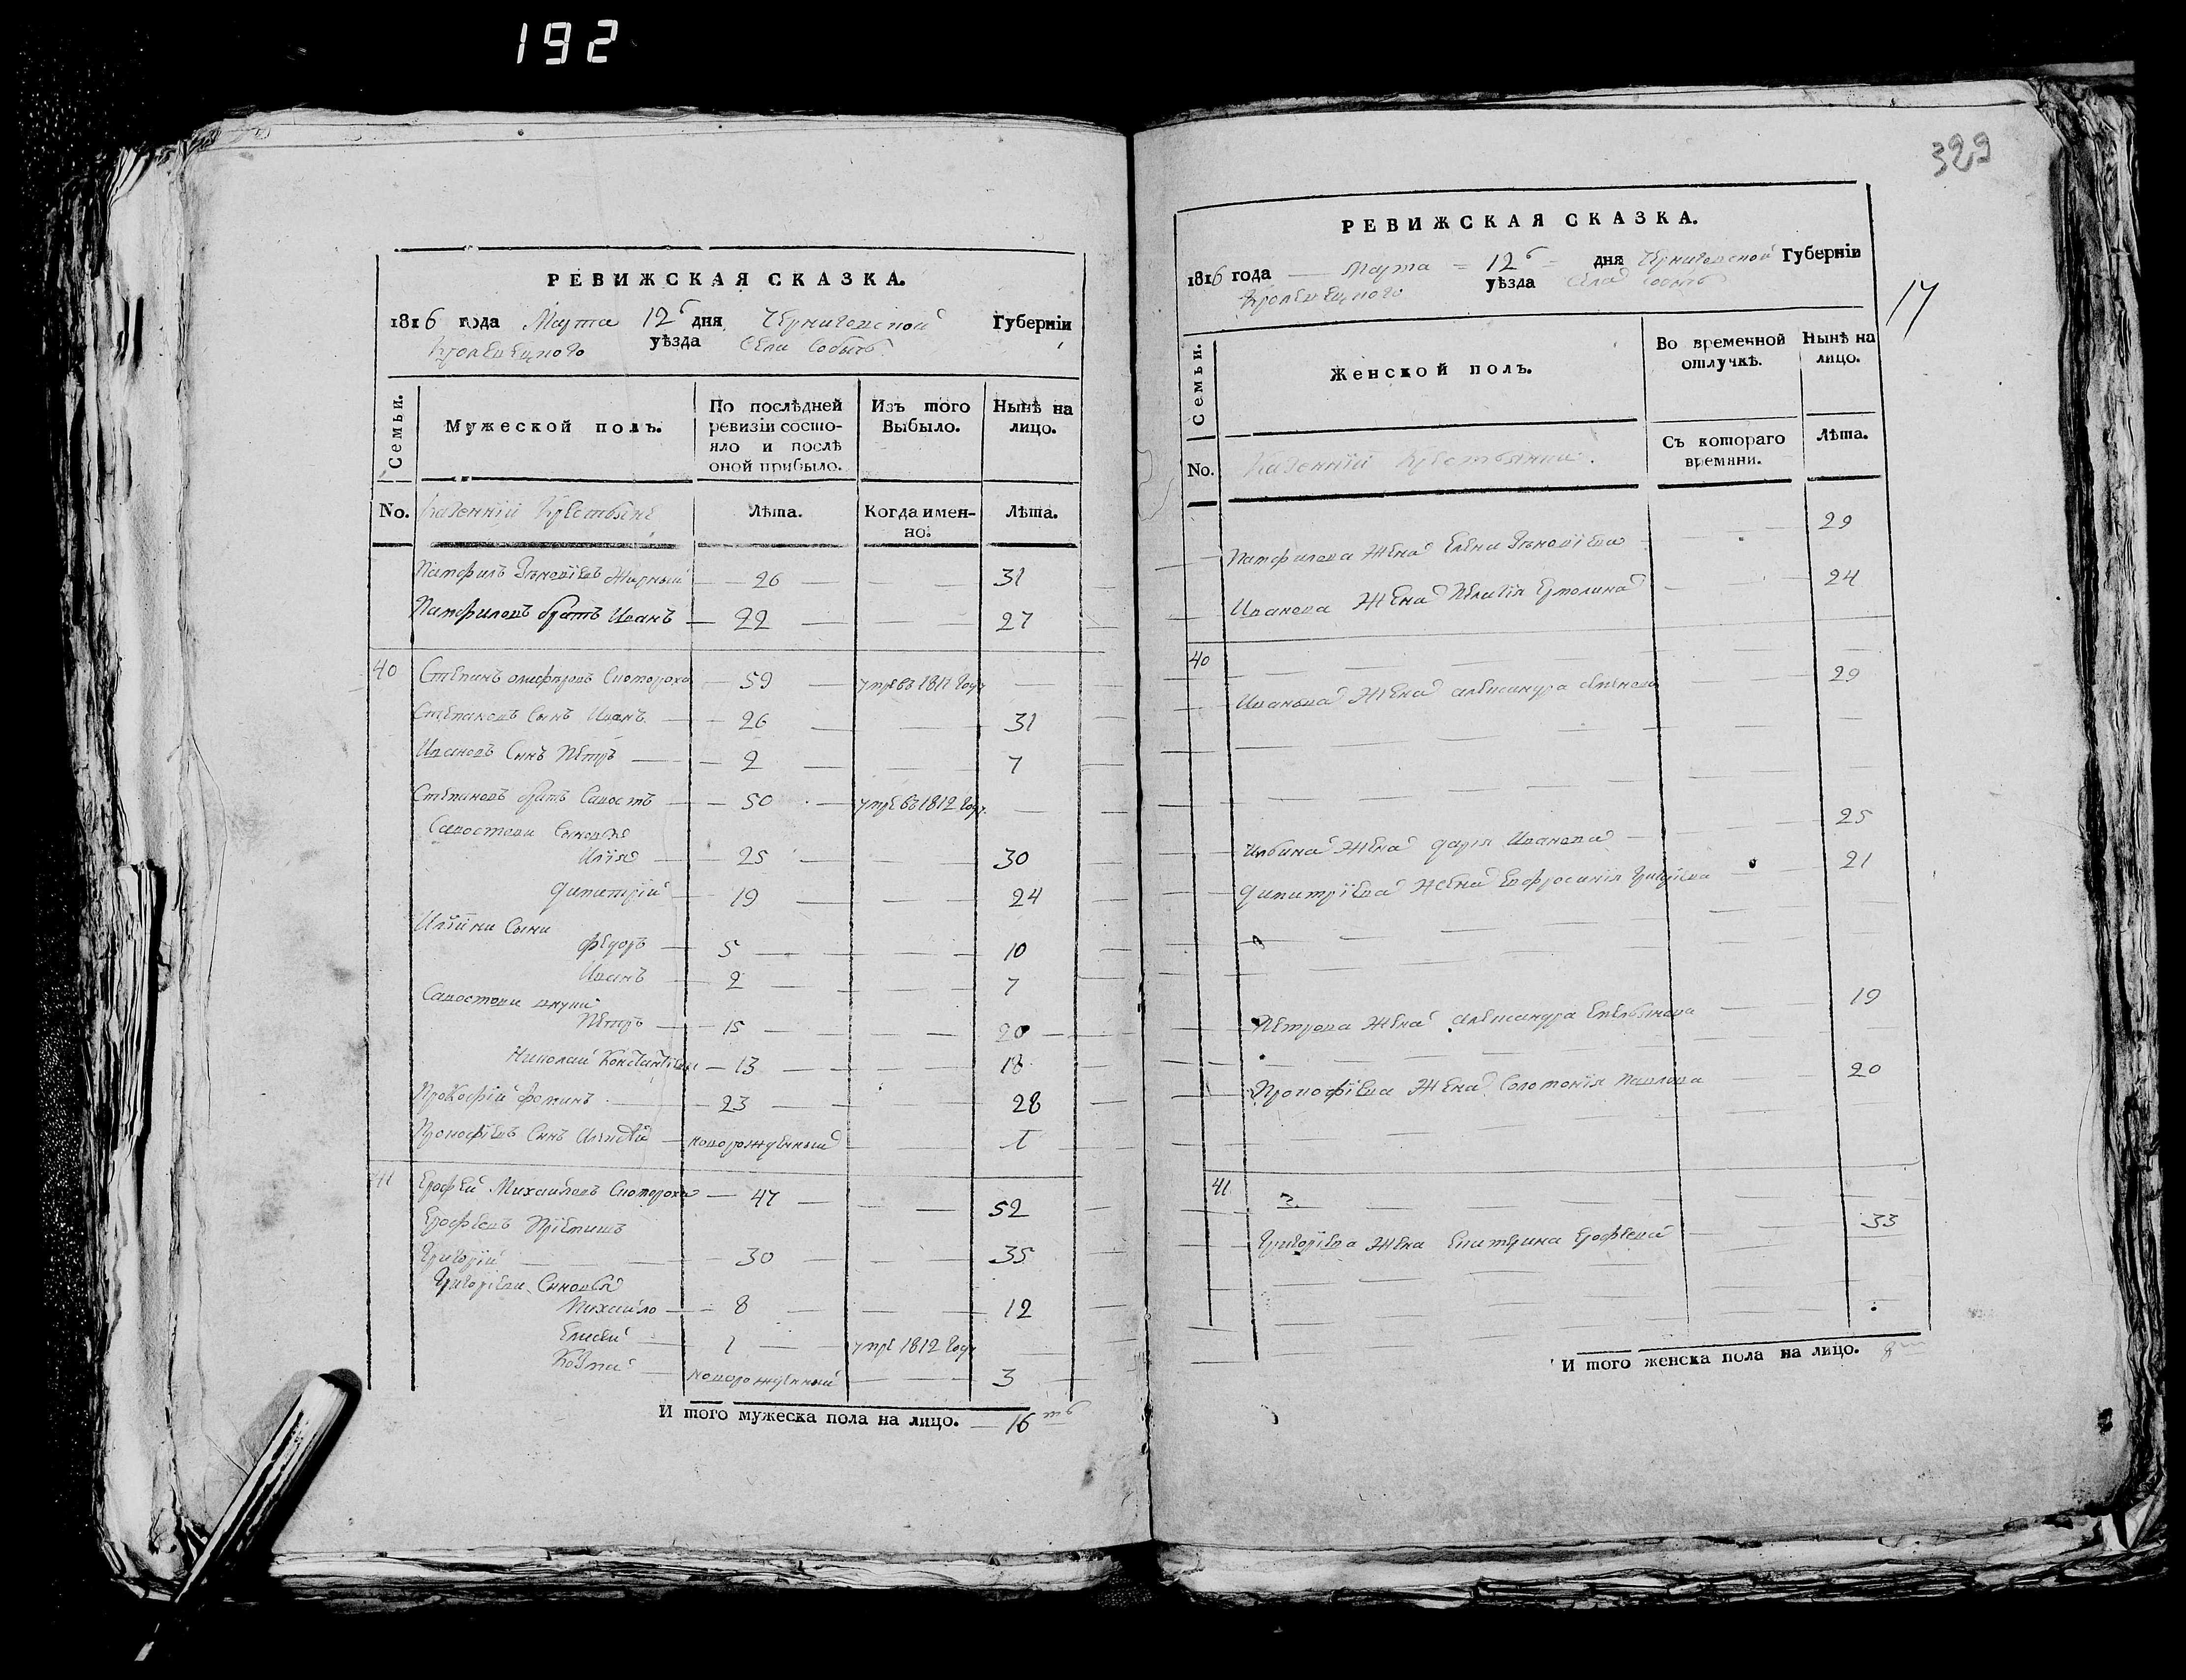 192
РЕВИЖСКАЯ СКАЗКА.
1816 года Марта 12 дня Черниговской Губерніи
Кролевецкого уѣзда Села Собичъ
Семьи. Мужеской полъ. По послѣдней ревизіи состояло и послѣ оной прибыло. Изъ того Выбыло. Нынѣ на лицо.
No. Казенній Крестьяне Лѣта. Когда именно. Лѣта.
Памфилъ Зѣновіевъ Жирный 26 31
Памфиловъ братъ Иванъ 22 27
40 Степанъ Скоторохъ 59 умре въ 1811 году
Степановъ Сынъ Иванъ 26 31
Ивановъ Синъ Петръ 2 7
Степановъ братъ Савостъ 50 умре въ 1812 году
Савостови Сыновья
Илія 25 30
Димитрій 19 24
Иліини Сыни
Федоръ 5 10
Иванъ 2 7
Савостови внуки
Петръ 15 20
Николай Константіеви 13 18
Прокофій Фоминъ 23 28
Прокофіевъ Синъ Алексѣй новорожденный 1
41 Ерофей Михайловъ Скоторохъ 47 52
Ерофеевъ Пріемишъ
Григорій 30 35
Григоріеви Синовья
Михайло 8 12
Елисей 1 умре 1812 году
Козма новорожденный 3
И того мужеска пола на лицо. 16
329
РЕВИЖСКАЯ СКАЗКА.
1816 года Марта 12 дня Черниговской Губерніи
Кролевецкого уѣзда Села Собичъ
17
Семьи. Женской полъ. Во временной отлучкѣ. Нынѣ на лицо.
No. Казенній Крестьянки. Съ котораго времяни. Лѣта.
Памфилова Жена Елена Зѣновіева 29
Иванова Жена Пелагія Ермолина 24
40
Иванова Жена Александра Семенова 29
Ильина Жена Дарія Иванова 25
Димитріева Жена Евфросинія Григоріева 21
Петрова Жена Александра Емельянова 19
Прокофіева Жена Соломонія Павлова 20
41
Григоріева Жена Екатерина Ерофеева 33
И того женска пола на лицо. 8